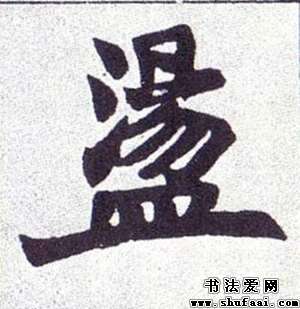 盪
书法爱网
www.shufaai.com